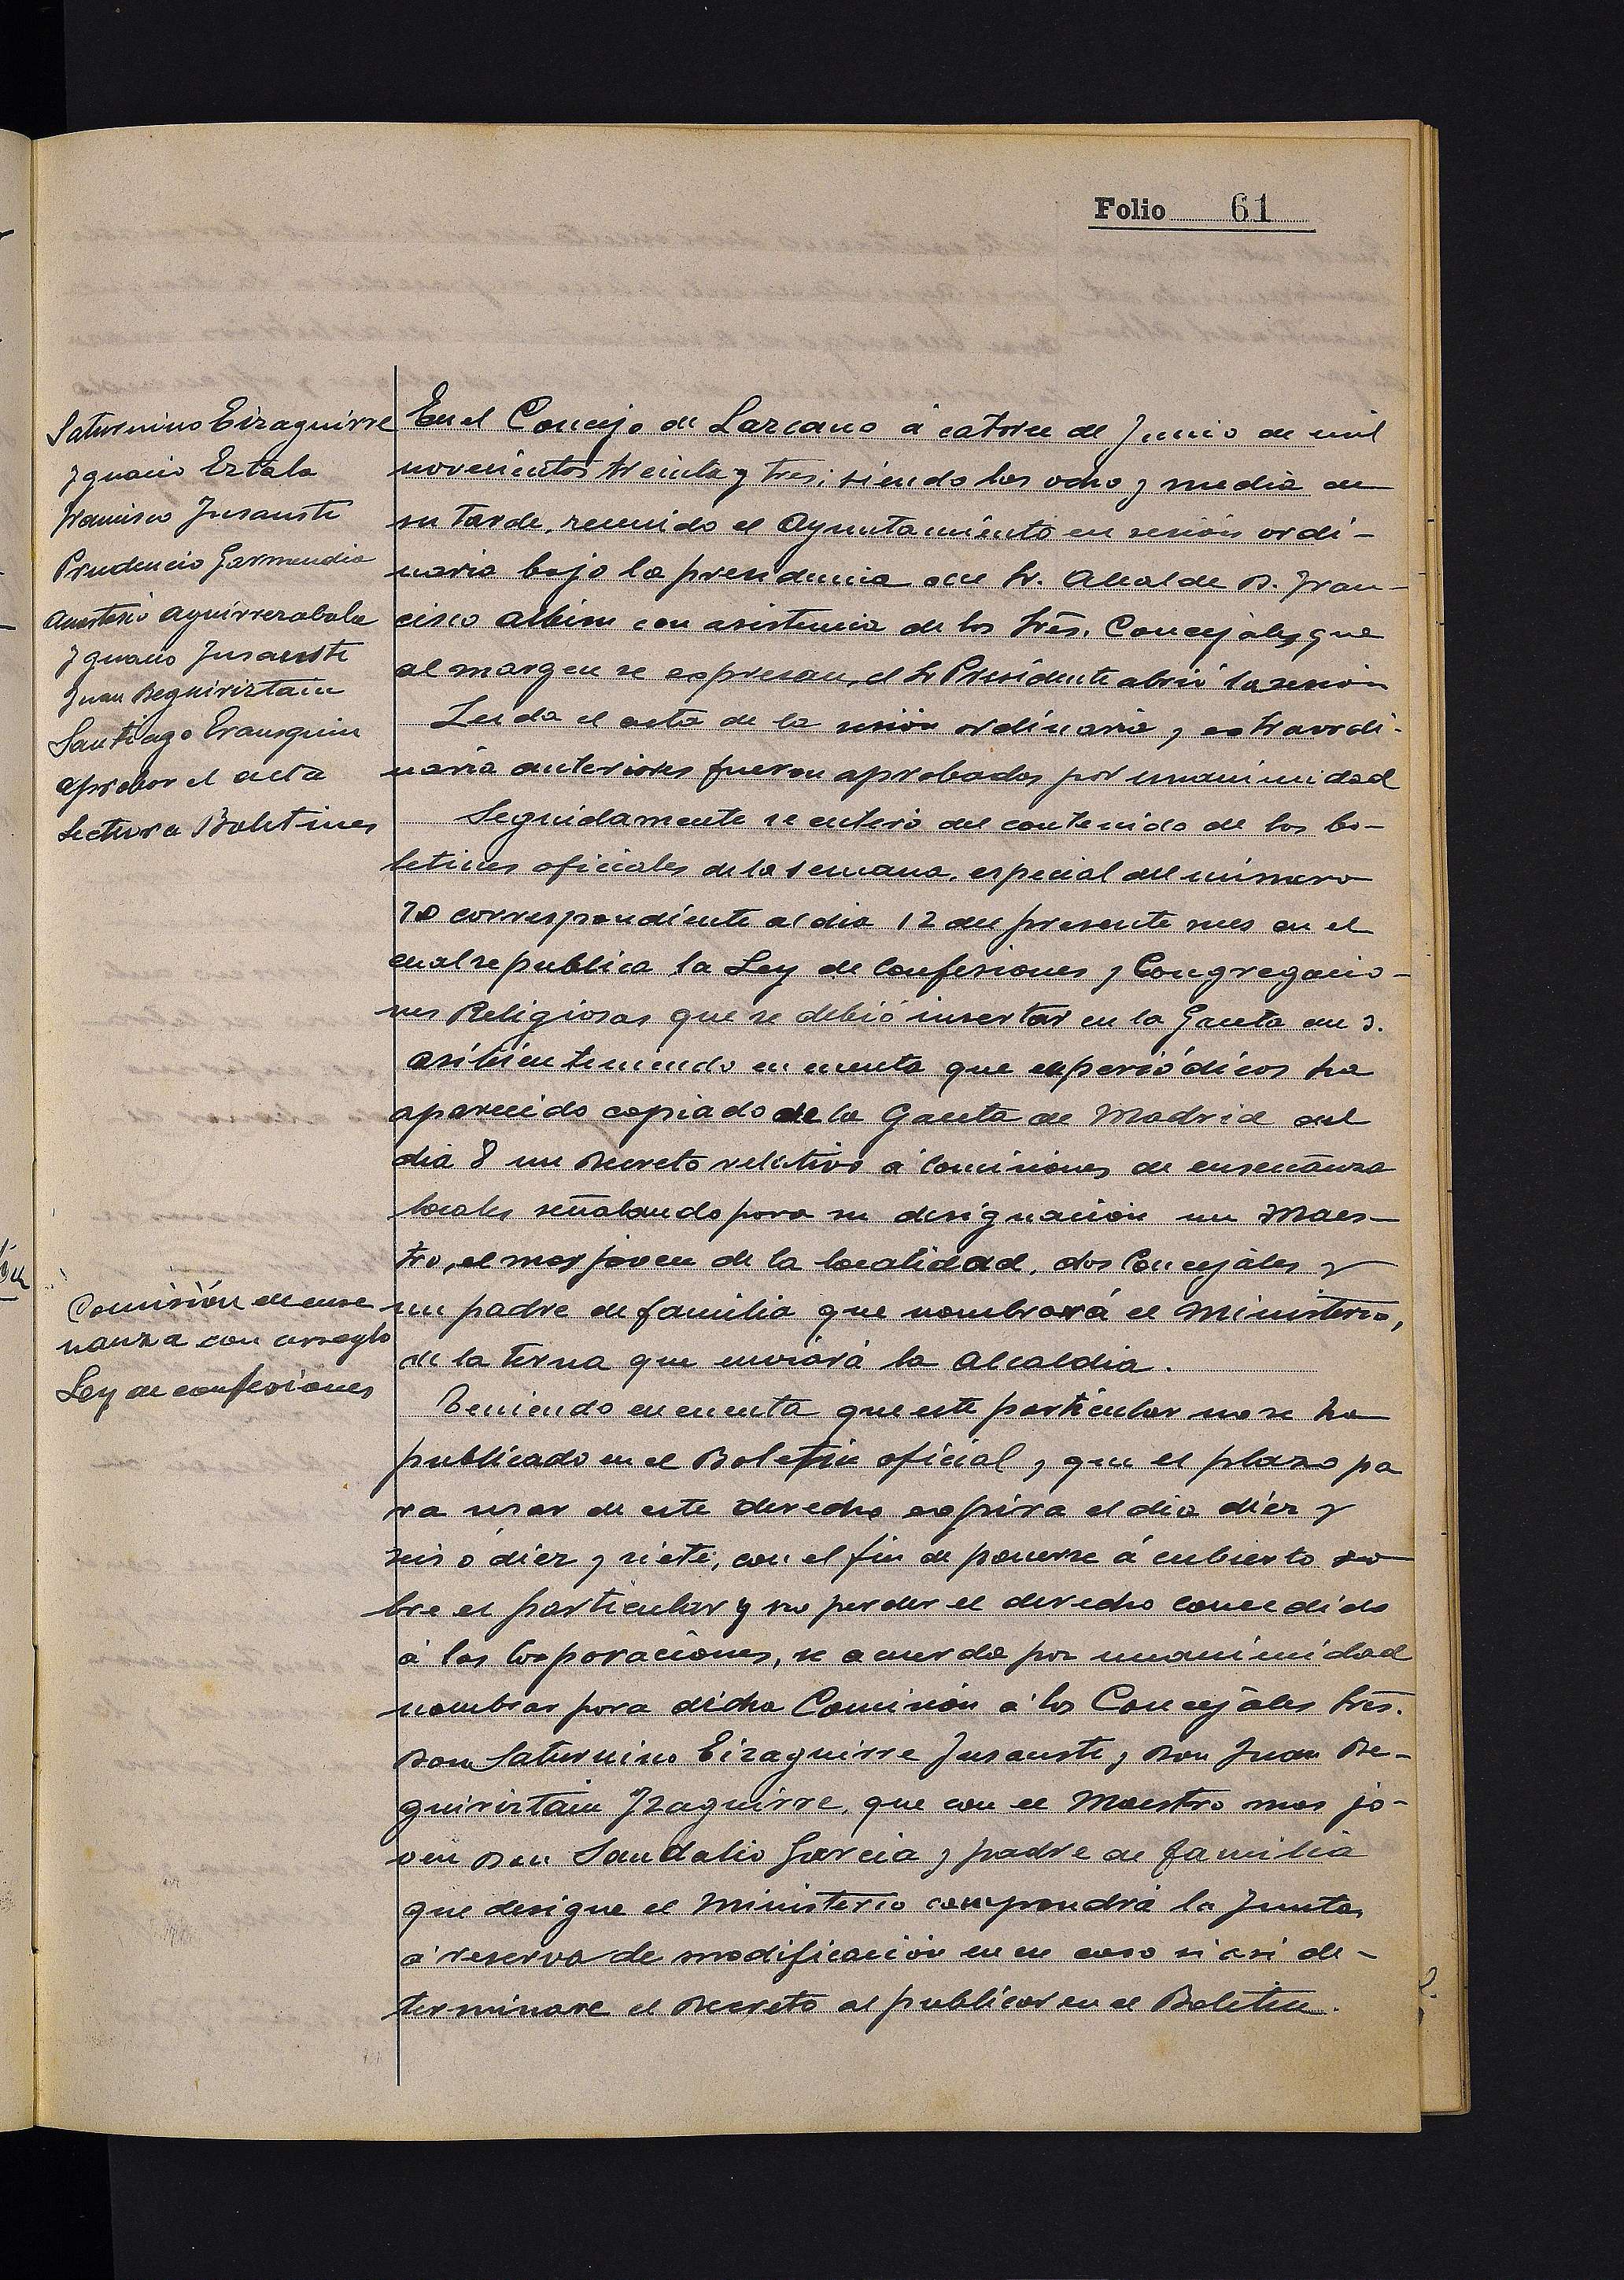 Folio 61
Saturnino Eizaguirre
Ignacio Eztala
Francisco Jusausti
Prudencio Garmendia
Anastasio Aguirrezabala
Ignacio Insausti
Juan Beguiriztain
Santiago Erausquin
Aprobar el acta
Lectura Boletines
Comisión de ense
nanza con arreglo
Ley de confesiones
En el Concejo de Lazcano á catorce de Junio de mil
novecientos treinta y tres, siendo las ocho y media de
su tarde, reunido el Ayuntamiento en sesión ordi-
naria bajo la presidencia del Sr. Alcalde D. Fran-
cisco Albisu con asistencia de los Srēs. Concejales, que
al margen se expresan, el Sr Presidente abrió la sesión
Leida el acta de la sesión ordinaria y extraordi-
naria anteriores fueron aprobadas por unanimidad
Seguidamente se enteró del contenido de los bo-
letines oficiales de la semana, especial del número
70 correspondiente al dia 12 del presente mes en el
cual se publica la Ley de Confesiones y Congregacio-
nes Religiosas que se debió insertar en la Gaceta del 3.
asi bien teniendo en cuenta que en periódicos ha
aparecido copiado de la Gaceta de Madrid del
dia 8 un Decreto relativo á Comisiones de enseñanza
locales señalando para su designación un Maes-
tro, el mas joven de la localidad, dos Concejales y
un padre de familia que nombrará el Ministerio,
de la terna que enviará la Alcaldia.
Teniendo en cuenta que este particular no se ha
publicado en el Boletin oficial y que el plazo pa
ra usar de este derecho expira el dia diez y
seis ó diez y siete, con el fin de ponerse á cubierto so
bre el particular y no perder el derecho concedido
á las Corporaciones, se acuerda por unanimidad
nombrar para dicha Comisión á los Concejales Srēs.
Don Saturnino Eizaguirre Insausti y Don Juan Be-
guiriztain Izaguirre, que con el Maestro mas jo-
ven Don Sandalio Garcia y padre de familia
que designe el Ministerio compondrá la Junta,
á reserva de modificación en su caso si asi de-
terminare el Decreto al publicar en el Boletin.